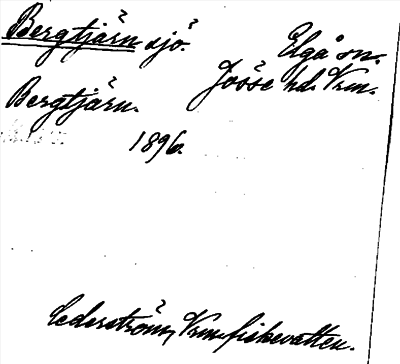 Bergtjärn sjö. Elgå sn.
Jösse hd. Vrm.
Bergtjärn.
1896.
Cederström, Vrm. fiskevatten.